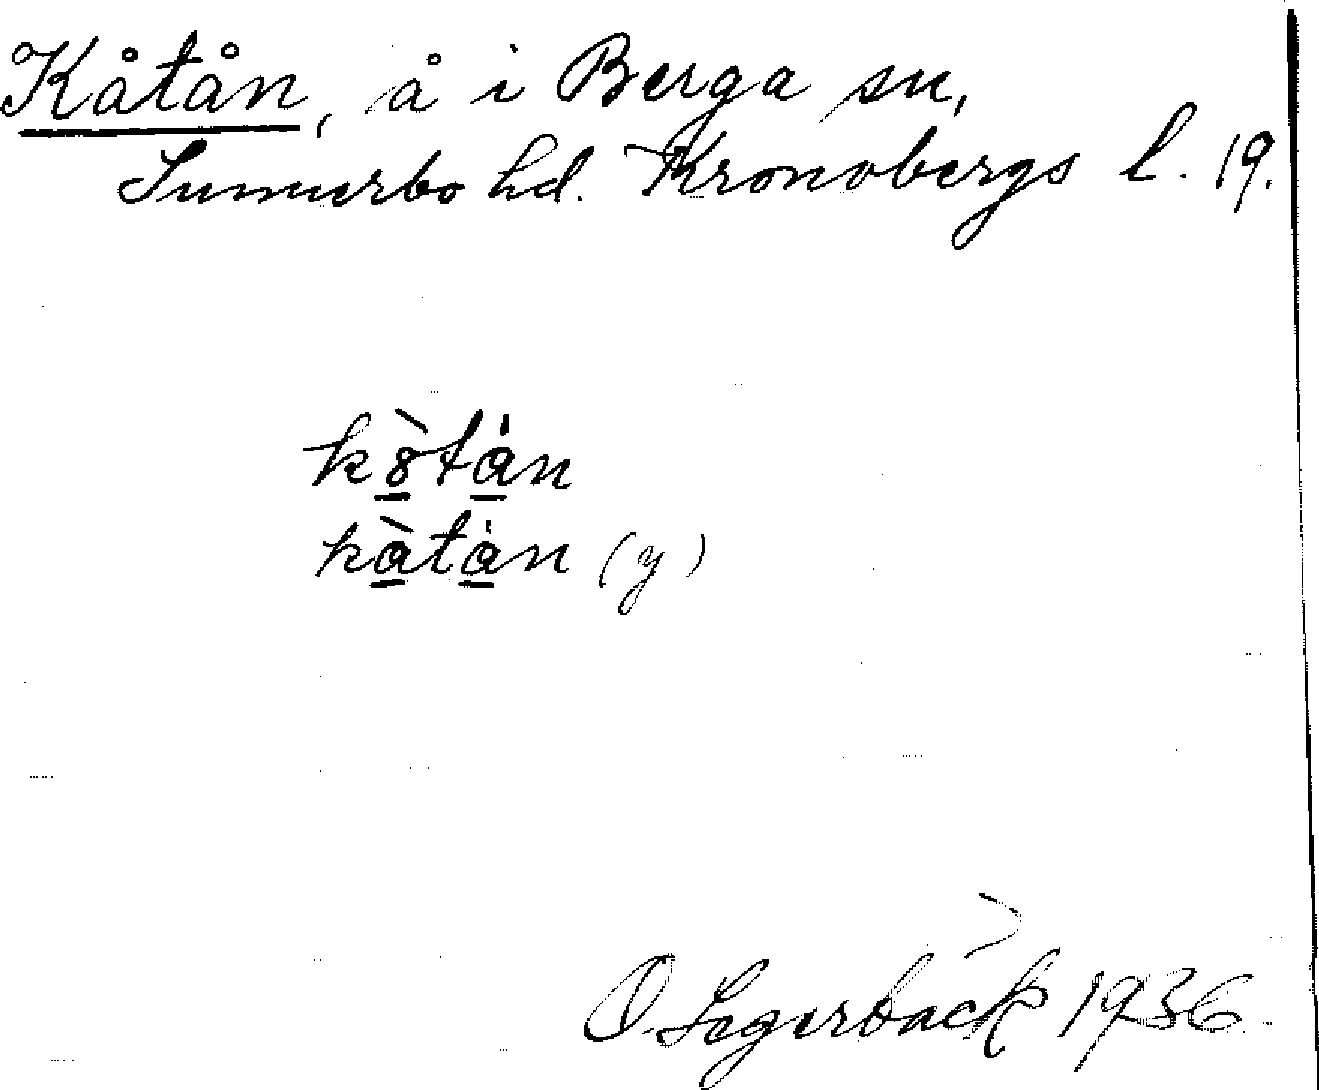 Kåtån, å i Berga sn,
Sunnerbo hd. Kronobergs l. 19.
kò̱tȧ̱n
kà̱tȧ̱n (y)
O. Segerbäck 1936